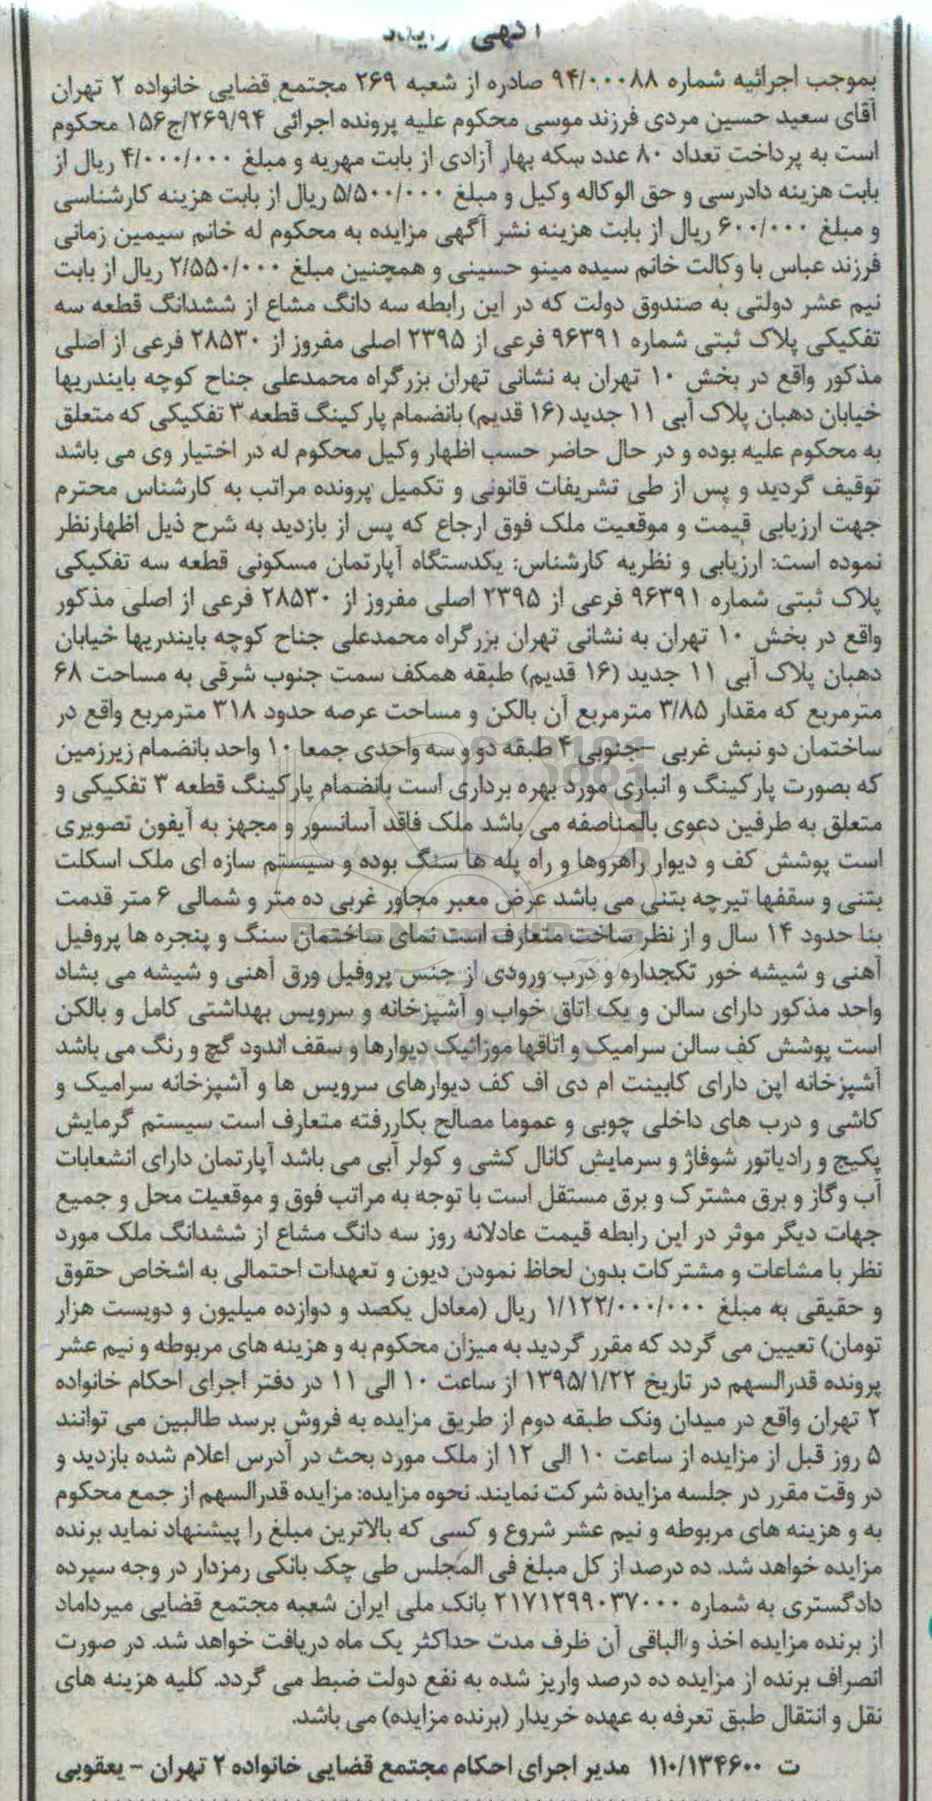 آگهی مزایده
بموجب اجرائیه شماره ۹۴/۰۰۰۸۸ صادره از شعبه ۲۶۹ مجتمع قضایی خانواده ۲ تهران
آقای سعید حسین مردی فرزند موسی محکوم علیه پرونده اجرائی ۲۶۹/۹۴/ج۱۵۶ محکوم
است به پرداخت تعداد ۸۰ عدد سکه بهار آزادی از بابت مهریه و مبلغ ۴/۰۰۰/۰۰۰ ریال از
بابت هزینه دادرسی و حق الوکاله وکیل و مبلغ ۵/۵۰۰/۰۰۰ ریال از بابت هزینه کارشناسی
و مبلغ ۶۰۰/۰۰۰ ریال از بابت هزینه نشر آگهی مزایده به محکوم له خانم سیمین زمانی
فرزند عباس با وکالت خانم سیده مینو حسینی و همچنین مبلغ ۲/۵۵۰/۰۰۰ ریال از بابت
نیم عشر دولتی به صندوق دولت که در این رابطه سه دانگ مشاع از ششدانگ قطعه سه
تفکیکی پلاک ثبتی شماره ۹۶۳۹۱ فرعی از ۲۳۹۵ اصلی مفروز از ۲۸۵۳۰ فرعی از اصلی
مذکور واقع در بخش ۱۰ تهران به نشانی تهران بزرگراه محمدعلی جناح کوچه بایندریها
خیابان دهبان پلاک آبی ۱۱ جدید (۱۶ قدیم) بانضمام پارکینگ قطعه ۳ تفکیکی که متعلق
به محکوم علیه بوده و در حال حاضر حسب اظهار وکیل محکوم له در اختیار وی می باشد
توقیف گردید و پس از طی تشریفات قانونی و تکمیل پرونده مراتب به کارشناس محترم
جهت ارزیابی قیمت و موقعیت ملک فوق ارجاع که پس از بازدید به شرح ذیل اظهارنظر
نموده است: ارزیابی و نظریه کارشناس: یکدستگاه آپارتمان مسکونی قطعه سه تفکیکی
پلاک ثبتی شماره ۹۶۳۹۱ فرعی از ۲۳۹۵ اصلی مفروز از ۲۸۵۳۰ فرعی از اصلی مذکور
واقع در بخش ۱۰ تهران به نشانی تهران بزرگراه محمدعلی جناح کوچه بایندریها خیابان
دهبان پلاک آبی ۱۱ جدید (۱۶ قدیم) طبقه همکف سمت جنوب شرقی به مساحت ۶۸
مترمربع که مقدار ۳/۸۵ مترمربع آن بالکن و مساحت عرصه حدود ۳۱۸ مترمربع واقع در
ساختمان دو نبش غربی –جنوبی ۴ طبقه دو و سه واحدی جمعا ۱۰ واحد بانضمام زیرزمین
که بصورت پارکینگ و انباری مورد بهره برداری است بانضمام پارکینگ قطعه ۳ تفکیکی و
متعلق به طرفین دعوی بالمناصفه می باشد ملک فاقد آسانسور و مجهز به آیفون تصویری
است پوشش کف و دیوار راهروها و راه پله ها سنگ بوده و سیستم سازه ای ملک اسکلت
بتنی و سقفها تیرچه بتنی می باشد عرض معبر مجاور غربی ده متر و شمالی ۶ متر قدمت
بنا حدود ۱۴ سال و از نظر ساخت متعارف است نمای ساختمان سنگ و پنجره ها پروفیل
آهنی و شیشه خور تکجداره و درب ورودی از جنس پروفیل ورق آهنی و شیشه می بشاد
واحد مذکور دارای سالن و یک اتاق خواب و آشپزخانه و سرویس بهداشتی کامل و بالکن
است پوشش کف سالن سرامیک و اتاقها موزائیک دیوارها و سقف اندود گچ و رنگ می باشد
آشپزخانه اپن دارای کابینت ام دی اف کف دیوارهای سرویس ها و آشپزخانه سرامیک و
کاشی و درب های داخلی چوبی و عموما مصالح بکاررفته متعارف است سیستم گرمایش
پکیج و رادیاتور شوفاژ و سرمایش کانال کشی و کولر آبی می باشد آپارتمان دارای انشعابات
آب وگاز و برق مشترک و برق مستقل است با توجه به مراتب فوق و موقعیت محل و جمیع
جهات دیگر موثر در این رابطه قیمت عادلانه روز سه دانگ مشاع از ششدانگ ملک مورد
نظر با مشاعات و مشترکات بدون لحاظ نمودن دیون و تعهدات احتمالی به اشخاص حقوق
و حقیقی به مبلغ ۱/۱۲۲/۰۰۰/۰۰۰ ریال (معادل یکصد و دوازده میلیون و دویست هزار
تومان) تعیین می گردد که مقرر گردید به میزان محکوم به و هزینه های مربوطه و نیم عشر
پرونده قدرالسهم در تاریخ ۱۳۹۵/۱/۲۲ از ساعت ۱۰ الی ۱۱ در دفتر اجرای احکام خانواده
۲ تهران واقع در میدان ونک طبقه دوم از طریق مزایده به فروش برسد طالبین می توانند
۵ روز قبل از مزایده از ساعت ۱۰ الی ۱۲ از ملک مورد بحث در آدرس اعلام شده بازدید و
در وقت مقرر در جلسه مزایده شرکت نمایند. نحوه مزایده: مزایده قدرالسهم از جمع محکوم
به و هزینه های مربوطه و نیم عشر شروع و کسی که بالاترین مبلغ را پیشنهاد نماید برنده
مزایده خواهد شد. ده درصد از کل مبلغ فی المجلس طی چک بانکی رمزدار در وجه سپرده
دادگستری به شماره ۲۱۷۱۲۹۹۰۳۷۰۰۰ بانک ملی ایران شعبه مجتمع قضایی میرداماد
از برنده مزایده اخذ و الباقی آن ظرف مدت حداکثر یک ماه دریافت خواهد شد. در صورت
انصراف برنده از مزایده ده درصد واریز شده به نفع دولت ضبط می گردد. کلیه هزینه های
نقل و انتقال طبق تعرفه به عهده خریدار (برنده مزایده) می باشد.
ت ۱۱۰/۱۳۴۶۰۰ مدیر اجرای احکام مجتمع قضایی خانواده ۲ تهران – یعقوبی